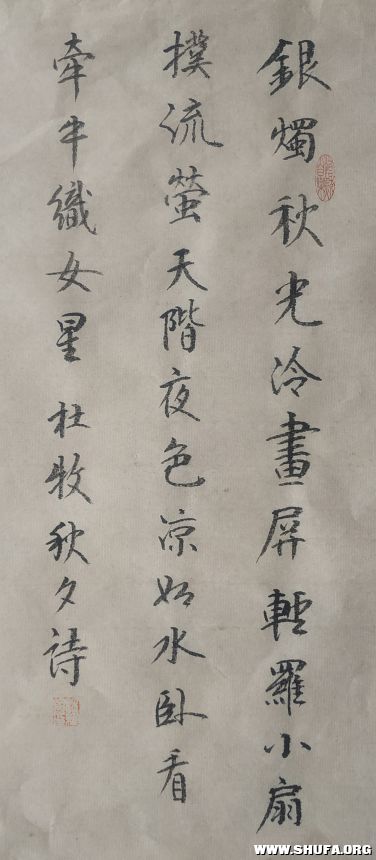 銀燭秋光冷畫屏輕羅小扇
撲流螢天階夜色凉如水臥看
牽牛織女星 杜牧秋夕詩
WWW.SHUFA.ORG